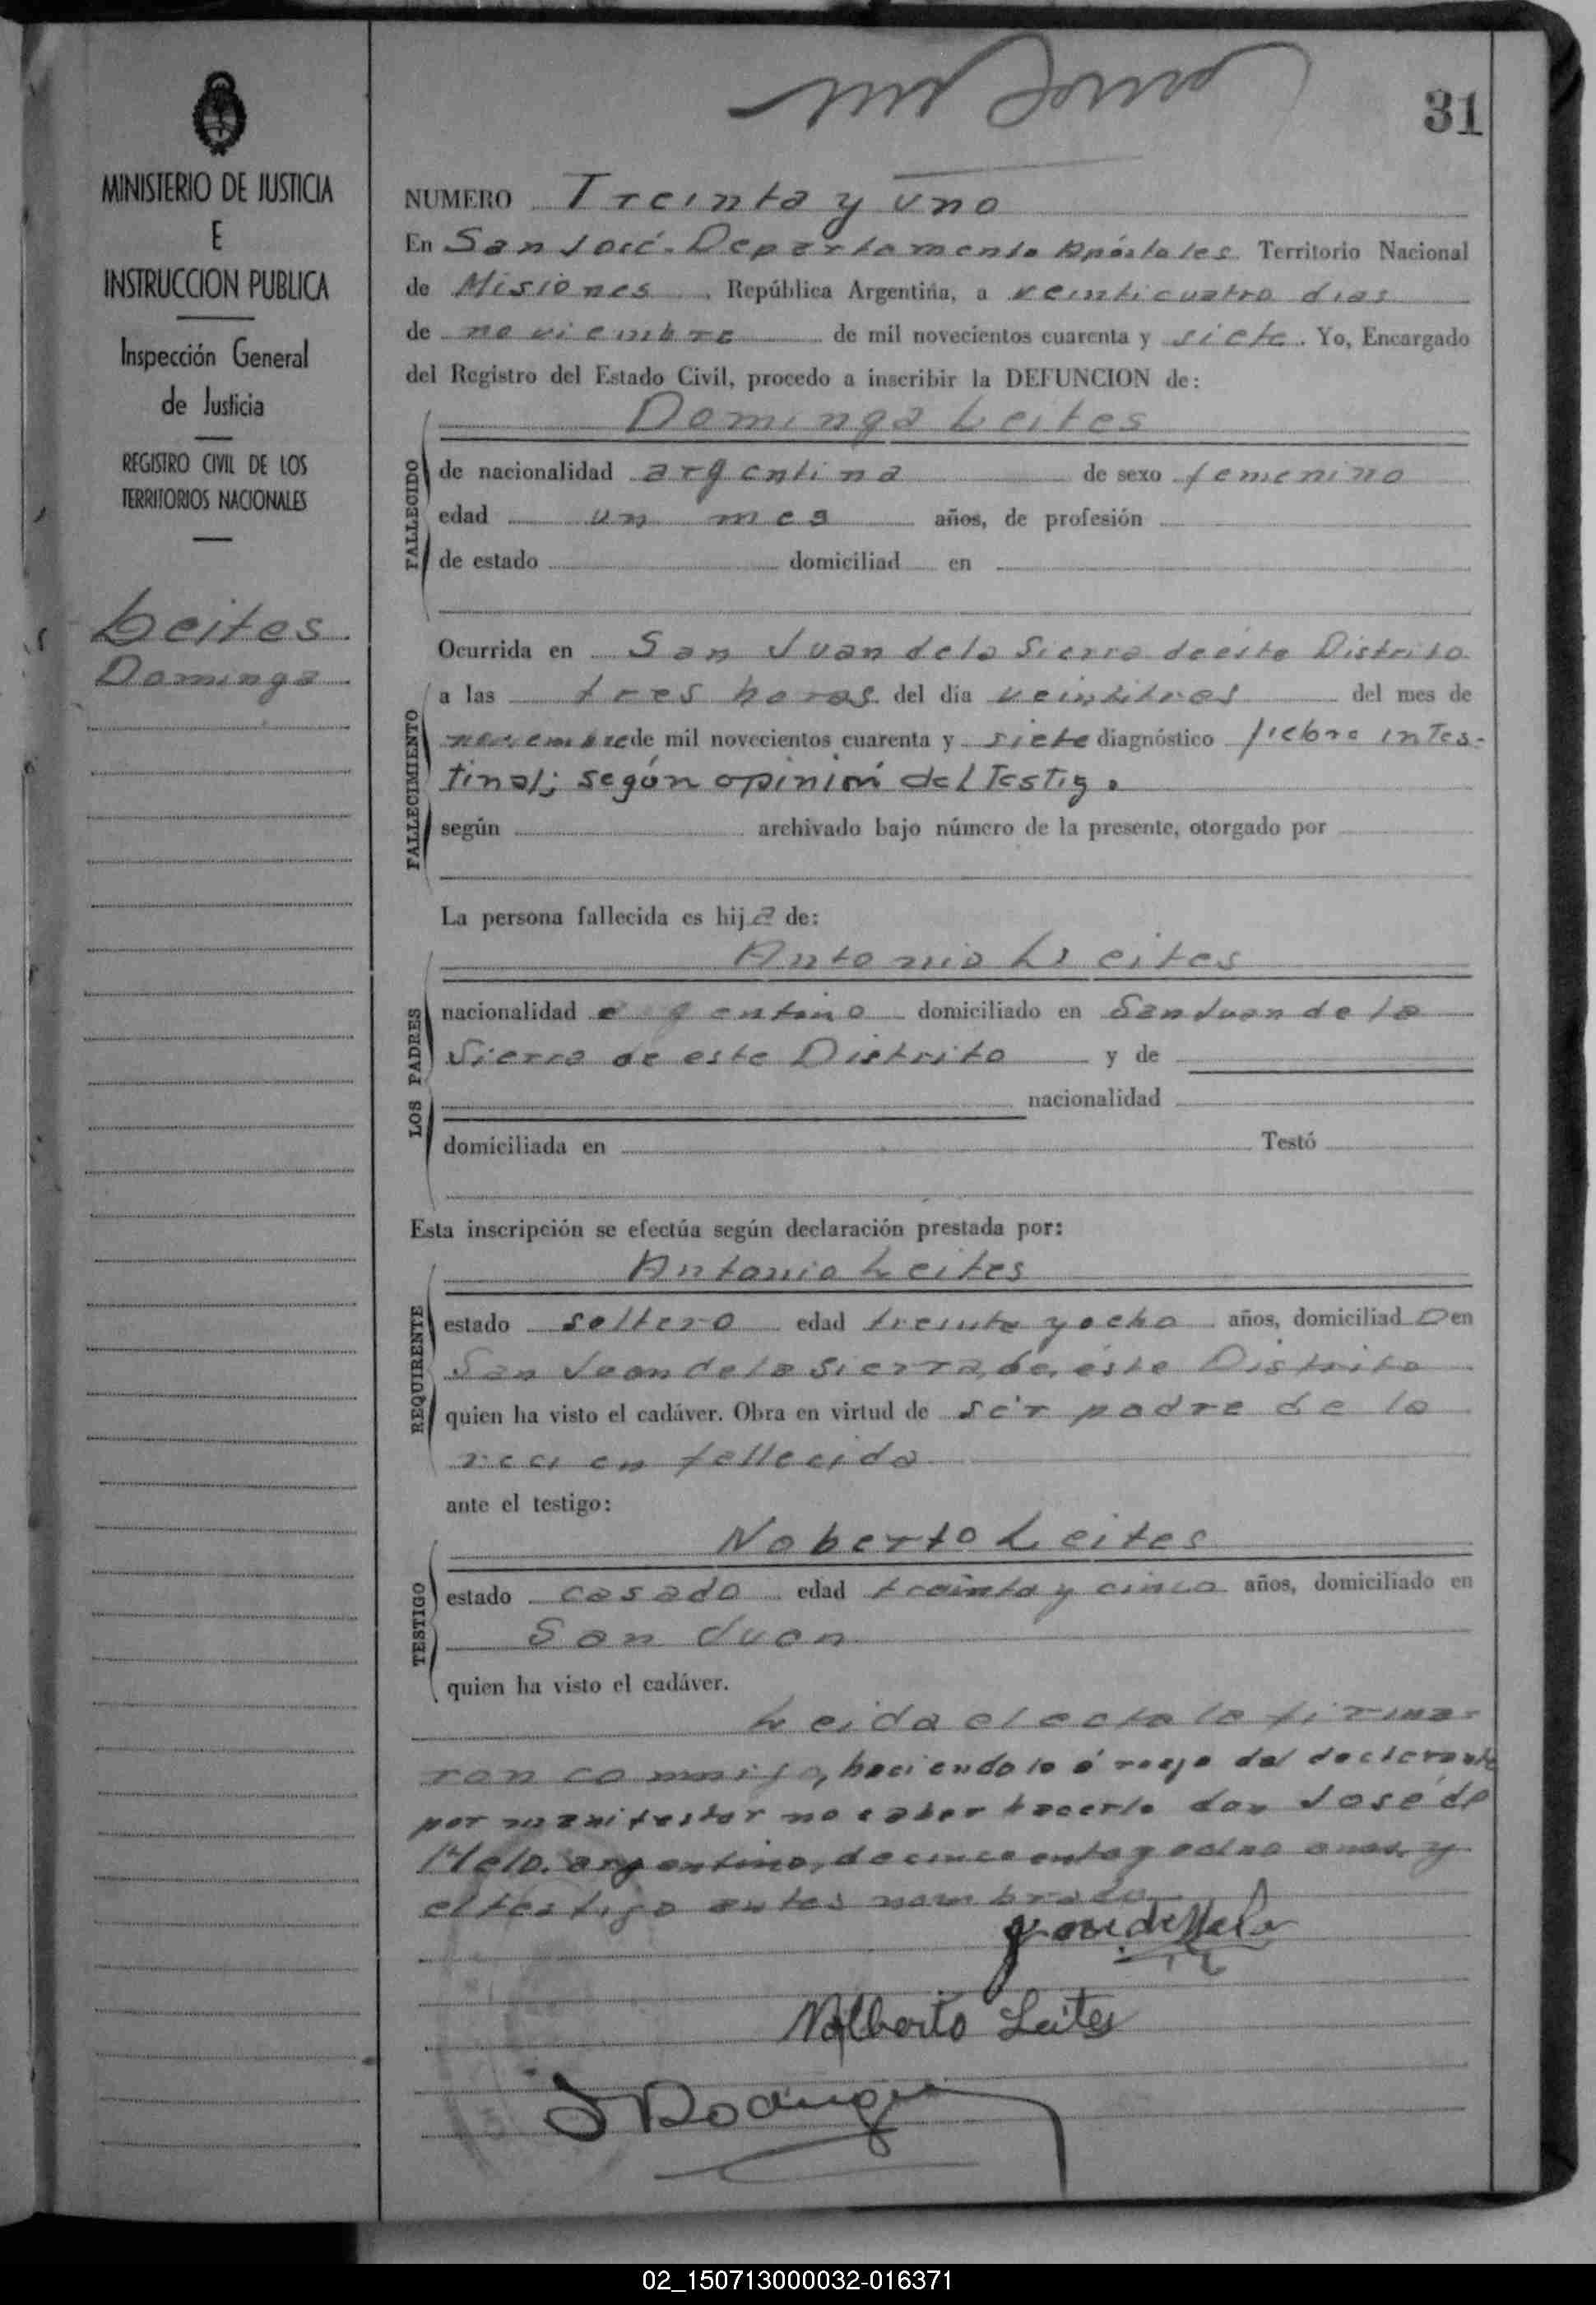 31
MINISTERIO DE JUSTICIA
E
INSTRUCCION PUBLICA
Inspección General
de Justicia
REGISTRO CIVIL DE LOS
TERRITORIOS NACIONALES
Leites
Dominga
NUMERO Treinta y uno
En San José - Departamento Apóstoles Territorio Nacional
de Misiones, República Argentina, a veinticuatro dias
de noviembre de mil novecientos cuarenta y siete. Yo, Encargado
del Registro del Estado Civil, procedo a inscribir la DEFUNCION de:
Dominga Leites
FALLECIDO
de nacionalidad argentina de sexo femenino
edad un mes años, de profesión
de estado domiciliad en
Ocurrida en San Juan de la Sierra de éste Distrito
FALLECIMIENTO
a las tres horas del día veintitres del mes de
noviembre de mil novecientos cuarenta y siete diagnóstico fiebre intes-
tinal; según opinión del Testigo
según archivado bajo número de la presente, otorgado por
La persona fallecida es hija de:
LOS PADRES
Antonio Leites
nacionalidad argentino domiciliado en San Juan de la
Sierra de este Distrito y de
nacionalidad
domiciliada en Testó
Esta inscripción se efectúa según declaración prestada por:
REQUIRENTE
Antonio Leites
estado soltero edad treinta y ocho años, domiciliado en
San Juan de la Sierra, de éste Distrito
quien ha visto el cadáver. Obra en virtud de ser padre de la
recien fallecida
ante el testigo:
TESTIGO
Noberto Leites
estado casado edad treinta y cinco años, domiciliado en
San Juan
quien ha visto el cadáver.
Leida el acta la firma-
ron conmigo, haciendolo á ruego del declarante
por manifestar no saber hacerlo don José de
Melo, argentino, de cincuenta y años y
el testigo antes nombrado
Jose de Melo
Nolberto Leites
J Rodriguez
02_150713000032-016371